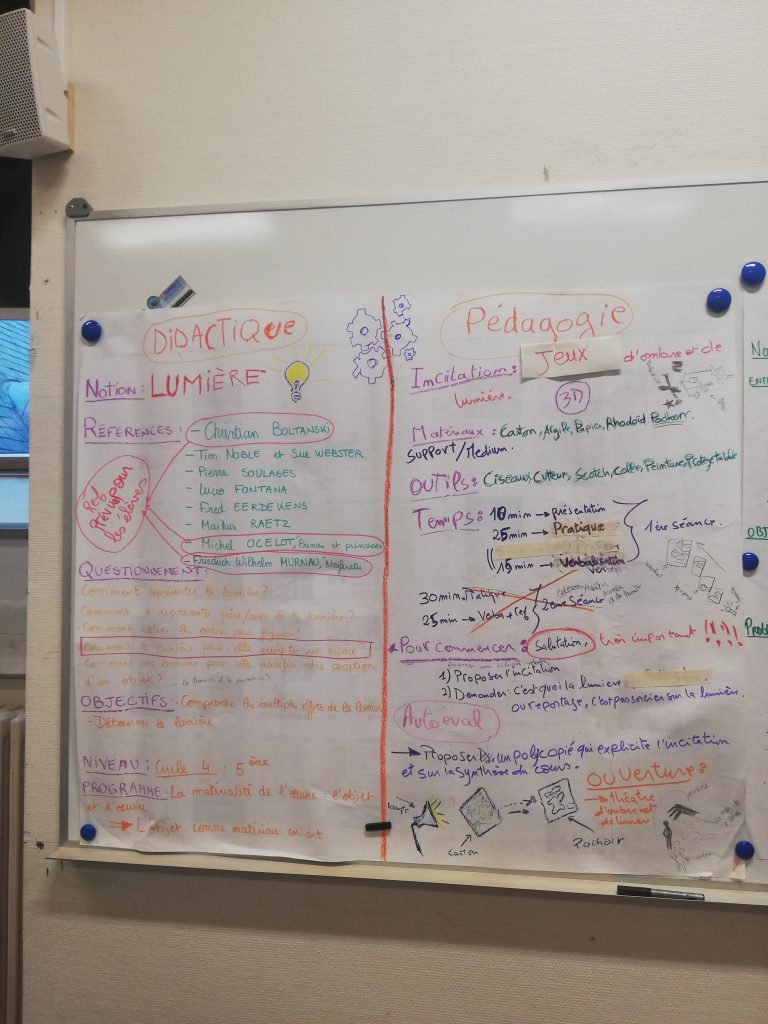 DIDACTIQUE
NOTION : LUMIÈRE
RÉFERENCES :
- Christian BOLTANSKI
- Tim NOBLE et Sue WEBSTER
- Pierre SOULAGES
- Lucio FONTANA
- Fred EERDEKENS
- Markus RAETZ
- Michel OCELOT, Princes et princesses
- Friedrich Wilhelm MURNAU, Nosferatu
Ref prévus pour les élèves
QUESTIONNEMENT :
- Comment représenter la lumière ?
- Comment se représente grâce/avec de la lumière ?
- Comment utiliser les ombres pour
Comment la lumière peut-elle investir un espace ?
- Comment une lumière peut elle modifier notre perception
d'un objet ?
OBJECTIFS : - Comprendre les multiples effets de la lumière
- Détourner la lumière
NIVEAU : Cycle 4 : 5ème
PROGRAMME : La matérialité de l'œuvre : l'objet
et l'œuvre
L'objet comme matériau en art.
Pédagogie
Incitation : Jeux d'ombre et de
lumière.
3D
Matériaux : Carton, Argile, Papier, Rhodoïd Pochoir.
support/Medium.
OUTILS : Ciseaux, Cutteur, Scotch, Colle, Peinture,
Temps : 10 min → présentation
25 min → Pratique
15 min → Verbalisation
1ère Séance.
30 min → Pratique
25 min → Verba + ref
2ème Séance
Pour commencer : Salutation, très important !!!
1) Proposer l'incitation
2) Demander : c'est quoi la lumière
ou reportage, c'est pas sorcier sur la lumière.
Autoéval
→ Proposer un polycopié qui explicite l'incitation
et sur la synthèse du cours.
OUVERTURE :
→ théâtre
d'ombre et
de lumière
lampe
carton
Pochoir